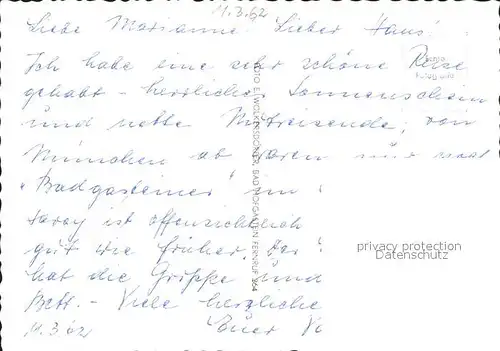 11.3.62
Liebe Marianne! Lieber Hans!
Ich habe eine sehr schöne Reise
gehabt - herrlicher Sonnenschein
und nette Mitreisende, von
München ab waren nur noch
"Badgasteiner" im
ist offensichtlich
gut wie früher. Der
hat die Grippe und
Bett. - Viele herzliche
11.3.62 Euer
FOTO E. WOLKERSDORFER, BAD HOFGASTEIN FERNRUF 364
privacy protection
www.ansichtskarten-center.de